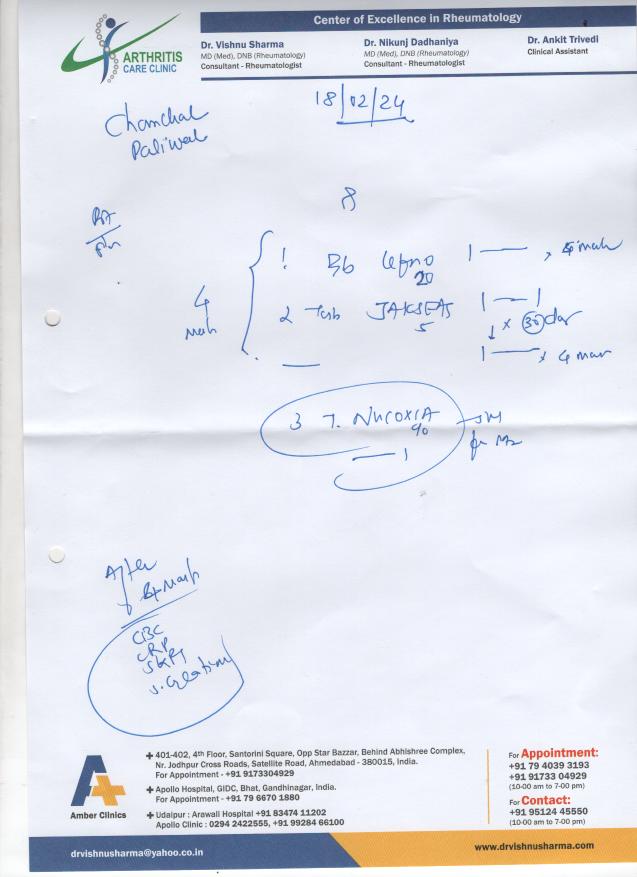 Center of Excellence in Rheumatology
ARTHRITIS
CARE CLINIC
Dr. Vishnu Sharma
MD (Med), DNB (Rheumatology)
Consultant - Rheumatologist
Dr. Nikunj Dadhaniya
MD (Med), DNB (Rheumatology)
Consultant - Rheumatologist
Dr. Ankit Trivedi
Clinical Assistant
18/02/24
Chanchal
Paliwal
1
20
2 Tab
5
1 — 1
x 30 day
3 T. NUCOXIA
90
— 1
After
CBC
CRP
SGPT
S. Creatinine
Amber Clinics
401-402, 4th Floor, Santorini Square, Opp Star Bazzar, Behind Abhishree Complex,
Nr. Jodhpur Cross Roads, Satellite Road, Ahmedabad - 380015, India.
For Appointment - +91 9173304929
Apollo Hospital, GIDC, Bhat, Gandhinagar, India.
For Appointment - +91 79 6670 1880
Udaipur : Arawali Hospital +91 83474 11202
Apollo Clinic : 0294 2422555, +91 99284 66100
For Appointment:
+91 79 4039 3193
+91 91733 04929
(10-00 am to 7-00 pm)
For Contact:
+91 95124 45550
(10-00 am to 7-00 pm)
drvishnusharma@yahoo.co.in
www.drvishnusharma.com